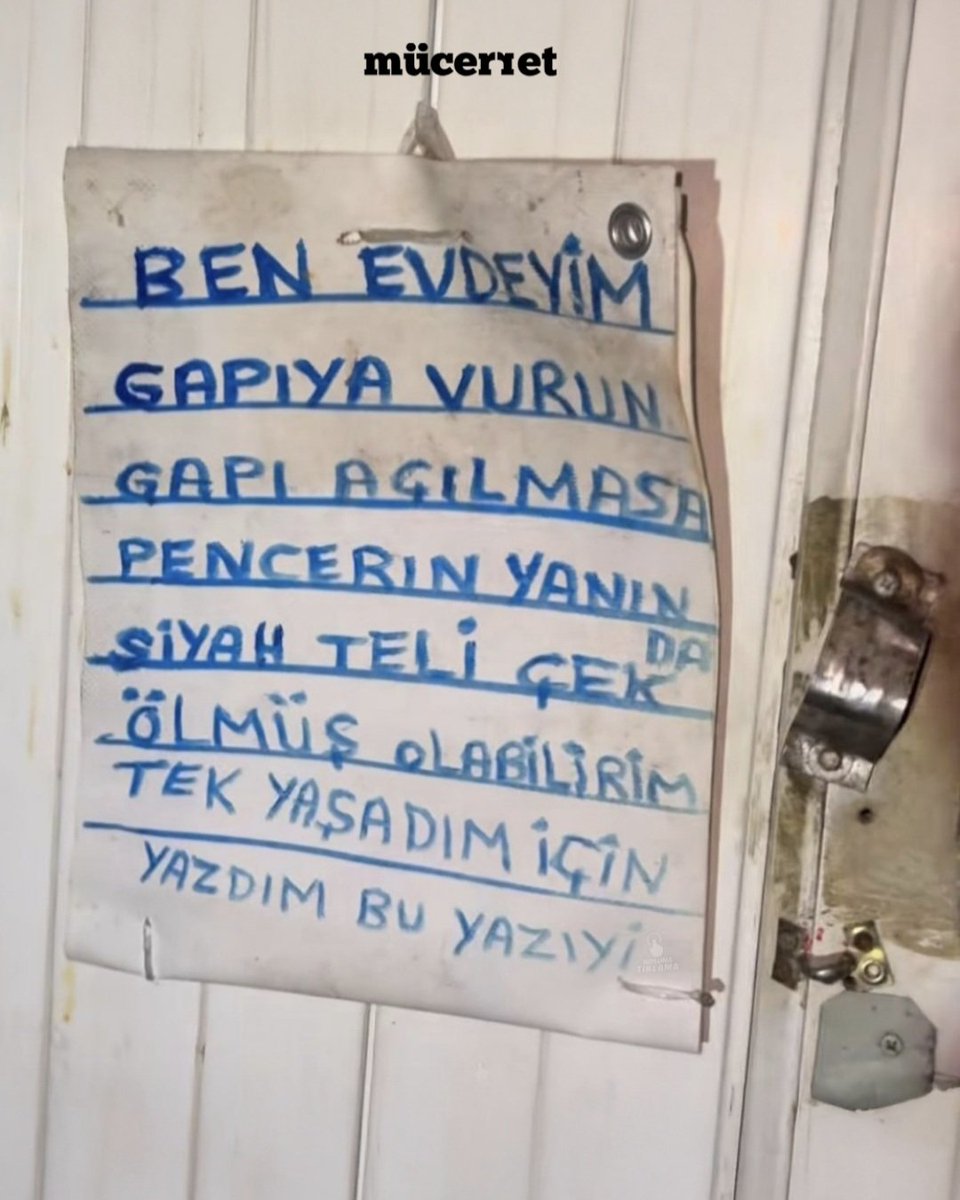 mücerret
BEN EVDEYİM
GAPIYA VURUN
GAPI AÇILMASA
PENCERIN YANIN
DA
SİYAH TELİ ÇEK
ÖLMÜŞ OLABİLİRİM
TEK YAŞADIM İÇİN
YAZDIM BU YAZIYİ